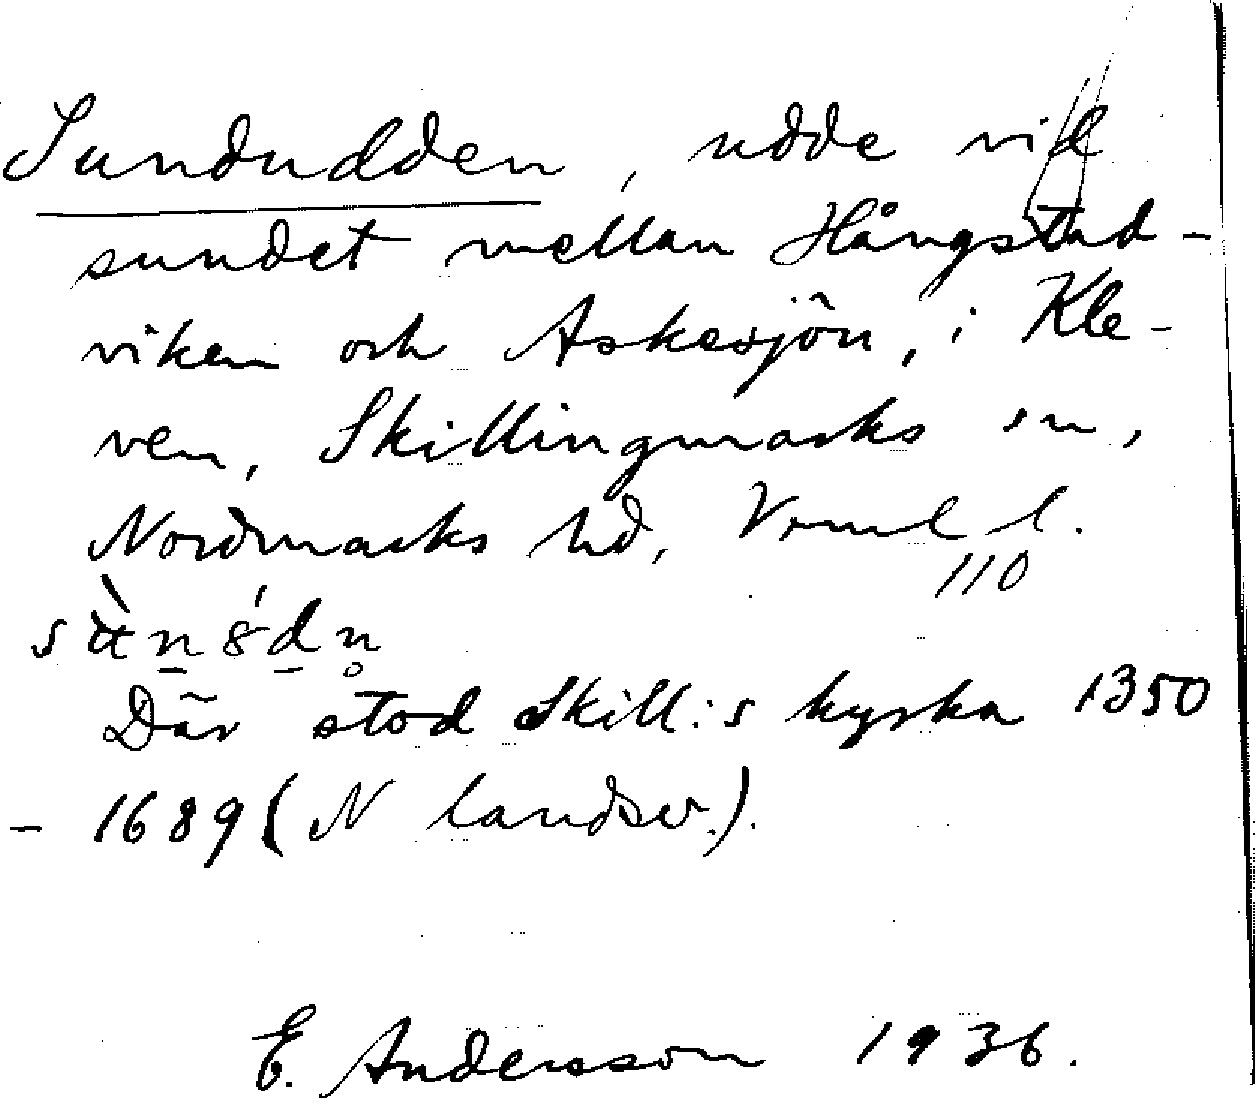 Sundudden, udde vid
sundet mellan Hångstad-
viken och Askesjön, i Kle-
ven, Skillingmarks sn,
Nordmarks hd, Vrml l.
110
Där stod Skill:s kyrka 1350
- 1689 (N landsv.).
E. Andersson 1936.